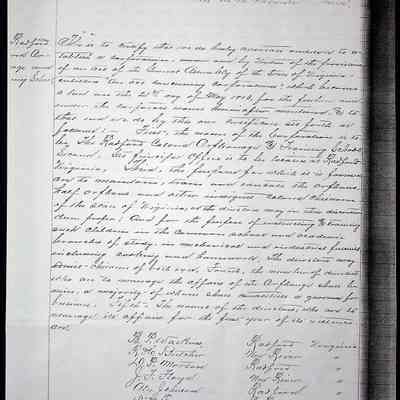 Radford
This is to certify that we do hereby associate ourselves to es-
tablish a corporation, under and by virtue of the provisions
of an Act of the General Assembly of the State of Virginia
entitled "An Act concerning corporations" which became
a law on the day of May 1903, for the purposes and
under the corporate name hereinafter mentioned, & to
that end we do by this our Certificate set forth as
follows: First, the name of the Corporation is to
be, The Radford Colored Orphanage & Training School
Second, Its principal Office is to be located at Radford
Virginia, Third, the purposes for which it is formed
are to maintain, train and educate the orphans,
half orphans and other indigent Colored children
of the State of Virginia, as the directors may in their discretion
deem proper; And for the purpose of instructing & training
such children in the common school and academic
branches of study, in mechanical and industrial pursuits
including cooking and housework. The directors may
children of said age. Fourth, the number of directors
who are to manage the affairs of the Orphanage shall be
nine, a majority of whom shall constitute a quorum for
business. Fifth: The names of the directors, who are to
manage its affairs for the first year of its existence
are
Radford Virginia
R. H. Butcher New River "
Morrison Radford "
J. F. Floyd New River "
Johnson Radford "